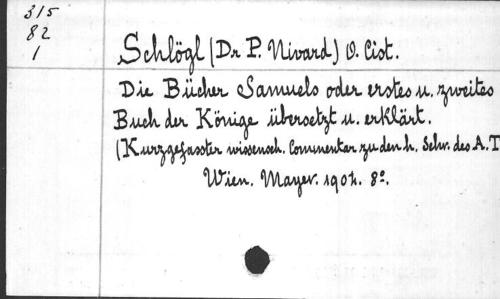 315
82
1
Schlögl (Dr P. Nivard) O. Cist.
Die Bücher Samuels oder erstes u. zweites
Buch der Könige übersetzt u. erklärt.
(Kurzgefasster wissensch. Commentar zu den h. Schr. des A. T
Wien. Mayer. 1904. 8º.